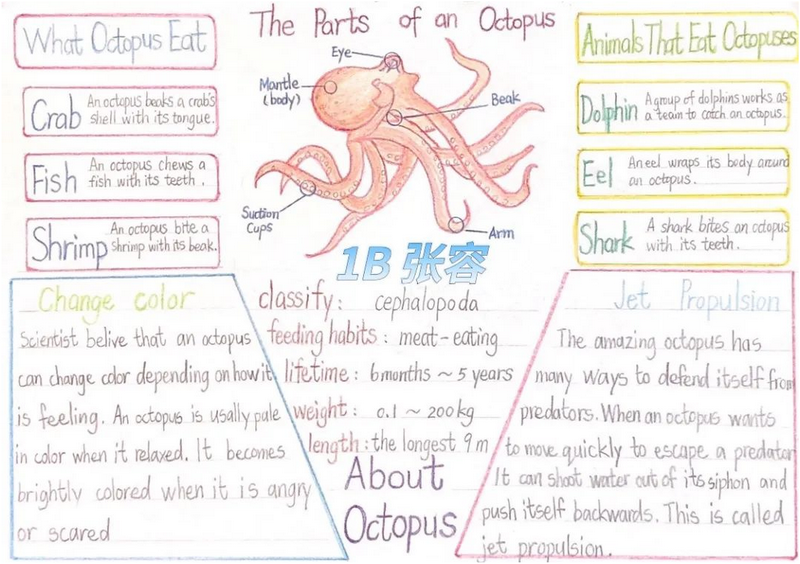 What Octopus Eat
Crab
An octopus beaks a crab's
shell with its tongue.
Fish
An octopus chews a
fish with its teeth.
Shrimp
An octopus bite a
shrimp with its beak.
The Parts of an Octopus
Eye
Mantle
(body)
Beak
Suction
Cups
Arm
1B 张容
Animals That Eat Octopuses
Dolphin
A group of dolphins works as
a team to catch an octopus.
Eel
An eel wraps its body around
an octopus.
Shark
A shark bites an octopus
with its teeth.
Change color
Scientist belive that an octopus
can change color depending on how it
is feeling. An octopus is usally pale
in color when it relaxed. It becomes
brightly colored when it is angry
or scared
classify: cephalopoda
feeding habits: meat-eating
lifetime: 6months ~ 5 years
weight: 0.1 ~ 200kg
length: the longest 9 m
About
Octopus
Jet Propulsion
The amazing octopus has
many ways to defend itself from
predators. When an octopus wants
to move quickly to escape a predator
It can shoot water out of its siphon and
push itself backwards. This is called
jet propulsion.